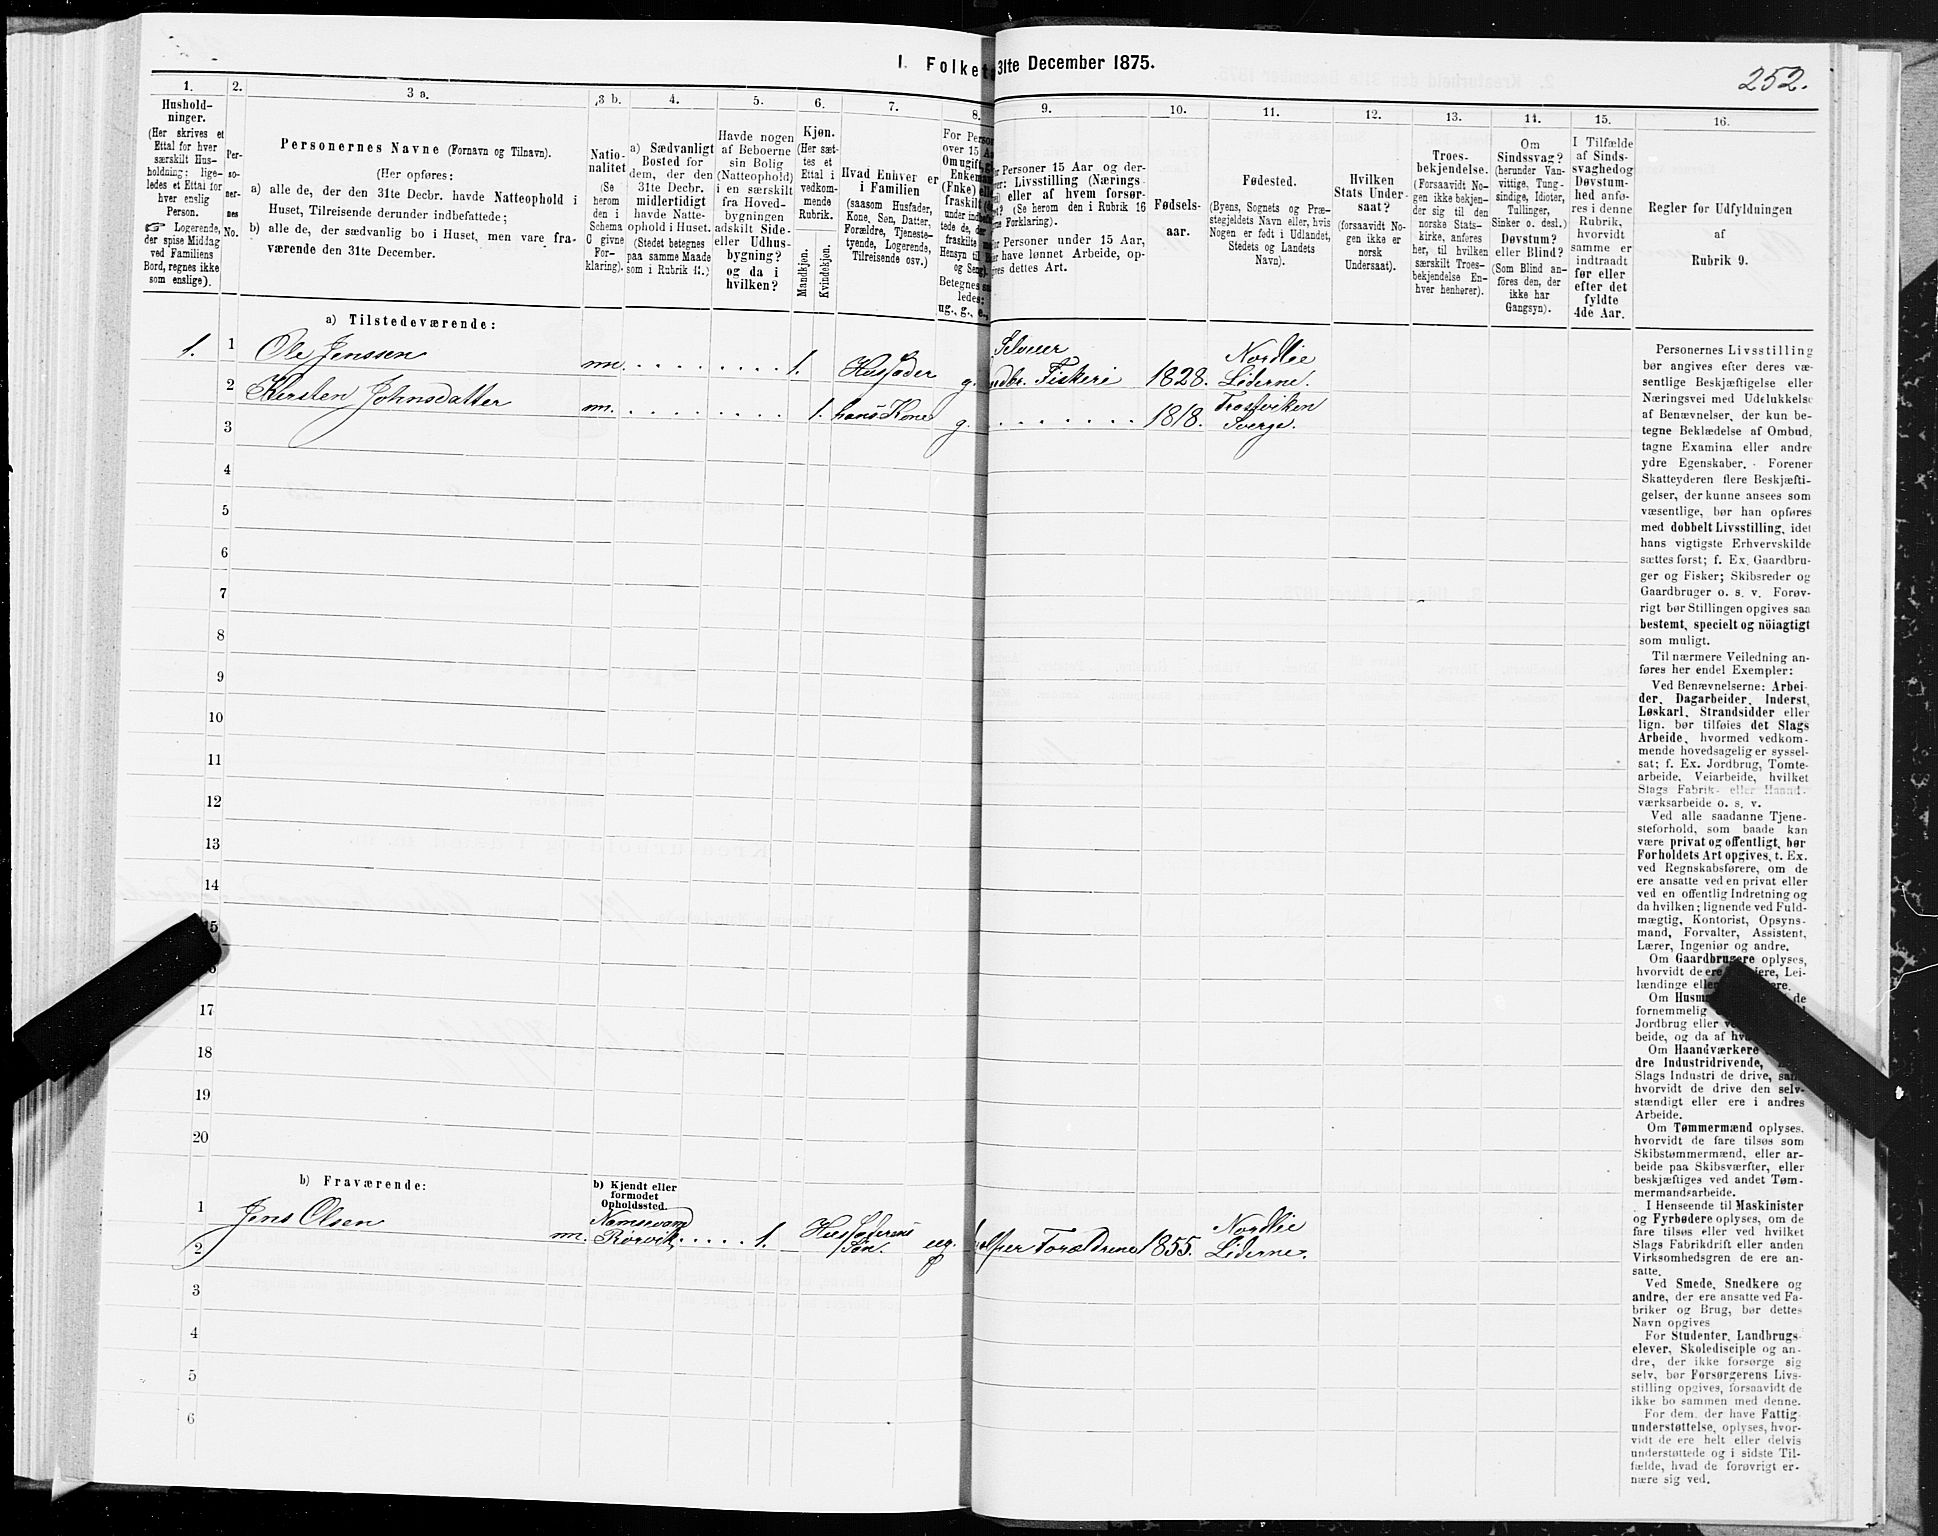 1. Folket 31te December 1875.
252.
1.
2.
3 a.
3 b.
4.
5.
6.
7.
8.
9.
10.
11.
12.
13.
14.
15.
16.
Hushold-
ninger.
(Her skrives et
Ettal for hver
særskilt Hus-
holdning; lige-
ledes et Ettal for
hver enslig
Person.
☞ Logerende,
der spise Middag
ved Familiens
Bord, regnes ikke
som enslige).
Per-
so-
ner-
nes
No.
Personernes Navne (Fornavn og Tilnavn).
(Her opføres:
a) alle de, der den 31te Decbr. havde Natteophold i
Huset, Tilreisende derunder indbefattede;
b) alle de, der sædvanlig bo i Huset, men vare fra-
værende den 31te December.
Natio-
nalitet
(Se
herom
den i
Schema
C givne
For-
klaring).
a) Sædvanligt
Bosted for
dem, der den
31te Decbr.
midlertidigt
havde Natte-
ophold i Huset.
(Stedet betegnes
paa samme Maade
som i Rubrik 11.)
Havde nogen
af Beboerne
sin Bolig
(Natteophold)
i en særskilt
fra Hoved-
bygningen
adskilt Side-
eller Udhus-
bygning?
og da i
hvilken?
Kjøn.
(Her sæt-
tes et
Ettal i
vedkom-
mende
Rubrik.
Mandkjøn.
Kvindekjøn.
Hvad Enhver er
i Familien
(saasom Husfader,
Kone, Søn, Datter,
Forældre, Tjeneste-
tyende, Logerende,
Tilreisende osv.)
For Pers
over 15 Aa
Om ugift, gi
Enkema
(Enke) elle
fraskilt
under indbe
tede de,
fraskilte
Hensyn til
og Seng).
Betegnes saa
ledes:
ug., g., e.,
or Personer 15 Aar og der-
ver: Livsstilling (Nærings-
ei) eller af hvem forsør-
et? (Se herom den i Rubrik 16
ne Forklaring).
or Personer under 15 Aar,
r have lønnet Arbeide, op-
øres dettes Art.
Fødsels-
aar.
Fødested.
(Byens, Sognets og Præ-
stegjeldets Navn eller, hvis
Nogen er født i Udlandet,
Stedets og Landets
Navn).
Hvilken
Stats Under-
saat?
(forsaavidt No-
gen ikke er
norsk
Undersaat).
Troes-
bekjendelse.
(Forsaavidt No-
gen ikke bekjen-
der sig til den
norske Stats-
kirke, anføres
her, til hvilken
særskilt Troes-
bekjendelse En-
hver henhører).
Om
Sindssvag?
(herunder Van-
vittige, Tung-
sindige, Idioter,
Tullinger,
Sinker o. desl.)
Døvstum?
eller Blind?
(Som Blind an-
føres den, der
ikke har
Gangsyn).
I Tilfælde
af Sinds-
svaghed og
Døvstum-
hed anfø-
res i denne
Rubrik,
hvorvidt
samme er
indtraadt
før eller
efter det
fyldte
4de Aar.
Regler for Udfyldningen
af
Rubrik 9.
a) Tilstedeværende:
1. 1 Ole Jenssen nn. 1. Husfader g. Selveier
ndbr. Fiskeri 1828. Nordlie
Liderne.
2 Kersten Johnsdatter nn. 1. hans Kone g. 1818. Frostviken
Sverge.
3
4
5
6
7
8
9
10
11
12
13
14
15
17
18
19
20
Personernes Livsstilling
bør angives efter deres væ-
sentlige Beskjæftigelse eller
Næringsvei med Udelukkelse
af Benævnelser, der kun be-
tegne Beklædelse af Ombud,
tagne Examina eller andre
ydre Egenskaber. Forener
Skatteyderen flere Beskjæfti-
gelser, der kunne ansees som
væsentlige, bør han opføres
med dobbelt Livsstilling, idet
hans vigtigste Erhvervskilde
sættes først; f. Ex. Gaardbru-
ger og Fisker; Skibsreder og
Gaardbruger o. s. v. Forøv-
rigt bør Stillingen opgives saa
bestemt, specielt og nöiagtigt
som muligt.
Til nærmere Veiledning an-
føres her endel Exempler:
Ved Benævnelserne: Arbei-
der, Dagarbeider, Inderst,
Løskarl, Strandsidder eller
lign. bør tilføies det Slags
Arbeide, hvormed vedkom-
mende hovedsagelig er syssel-
sat; f. Ex. Jordbrug, Tomte-
arbeide, Veiarbeide, hvilket
Slags Fabrik- eller Haand-
værksarbeide o. s. v.
Ved alle saadanne Tjene-
steforhold, som baade kan
være privat og offentligt, bør
Forholdets Art opgives, t. Ex.
ved Regnskabsførere, om de
ere ansatte ved en privat eller
ved en offentlig Indretning og
da hvilken; lignende ved Fuld-
mægtig, Kontorist, Opsyns-
mand, Forvalter, Assistent,
Lærer, Ingeniør og andre.
Om Gaardbrugere oplyses,
hvorvidt de ere iere, Lei-
lændinge elle ere.
Om Husm de
fornemmelig
Jordbrug eller v
beide, og da af hv
Om Haandværkere
dre Industridrivende,
Slags Industri de drive, sam
hvorvidt de drive den selv-
stændigt eller ere i andres
Arbeide.
Om Tømmermænd oplyses,
hvorvidt de fare tilsøs som
Skibstømmermænd, eller ar-
beide paa Skibsværfter, eller
beskjæftiges ved andet Tøm-
mermandsarbeide.
I Henseende til Maskinister
og Fyrbødere oplyses, om de
fare tilsøs eller ved hvilket
Slags Fabrikdrift eller anden
Virksomhedsgren de ere an-
satte.
Ved Smede, Snedkere og
andre, der ere ansatte ved Fa-
briker og Brug, bør dettes
Navn opgives
For Studenter, Landbrugs-
elever, Skoledisciple og an-
dre, der ikke forsørge sig
selv, bør Forsørgerens Livs-
stilling opgives, forsaavidt de
ikke bo sammen med denne.
For dem, der have Fattig-
understøttelse, oplyses, hvor-
vidt de ere helt eller delvis
understøttede og i sidste Til-
fælde, hvad de forøvrigt er-
nære sig ved.
b) Fraværende:
b) Kjendt eller
formodet
Opholdssted.
1 Jens Olsen nn. Namsevand
Rørvik 1. Husfaderens
Søn. ug. hjelper Forældrene 1855. Nordlie
Liderne.
2
3
4
5
6